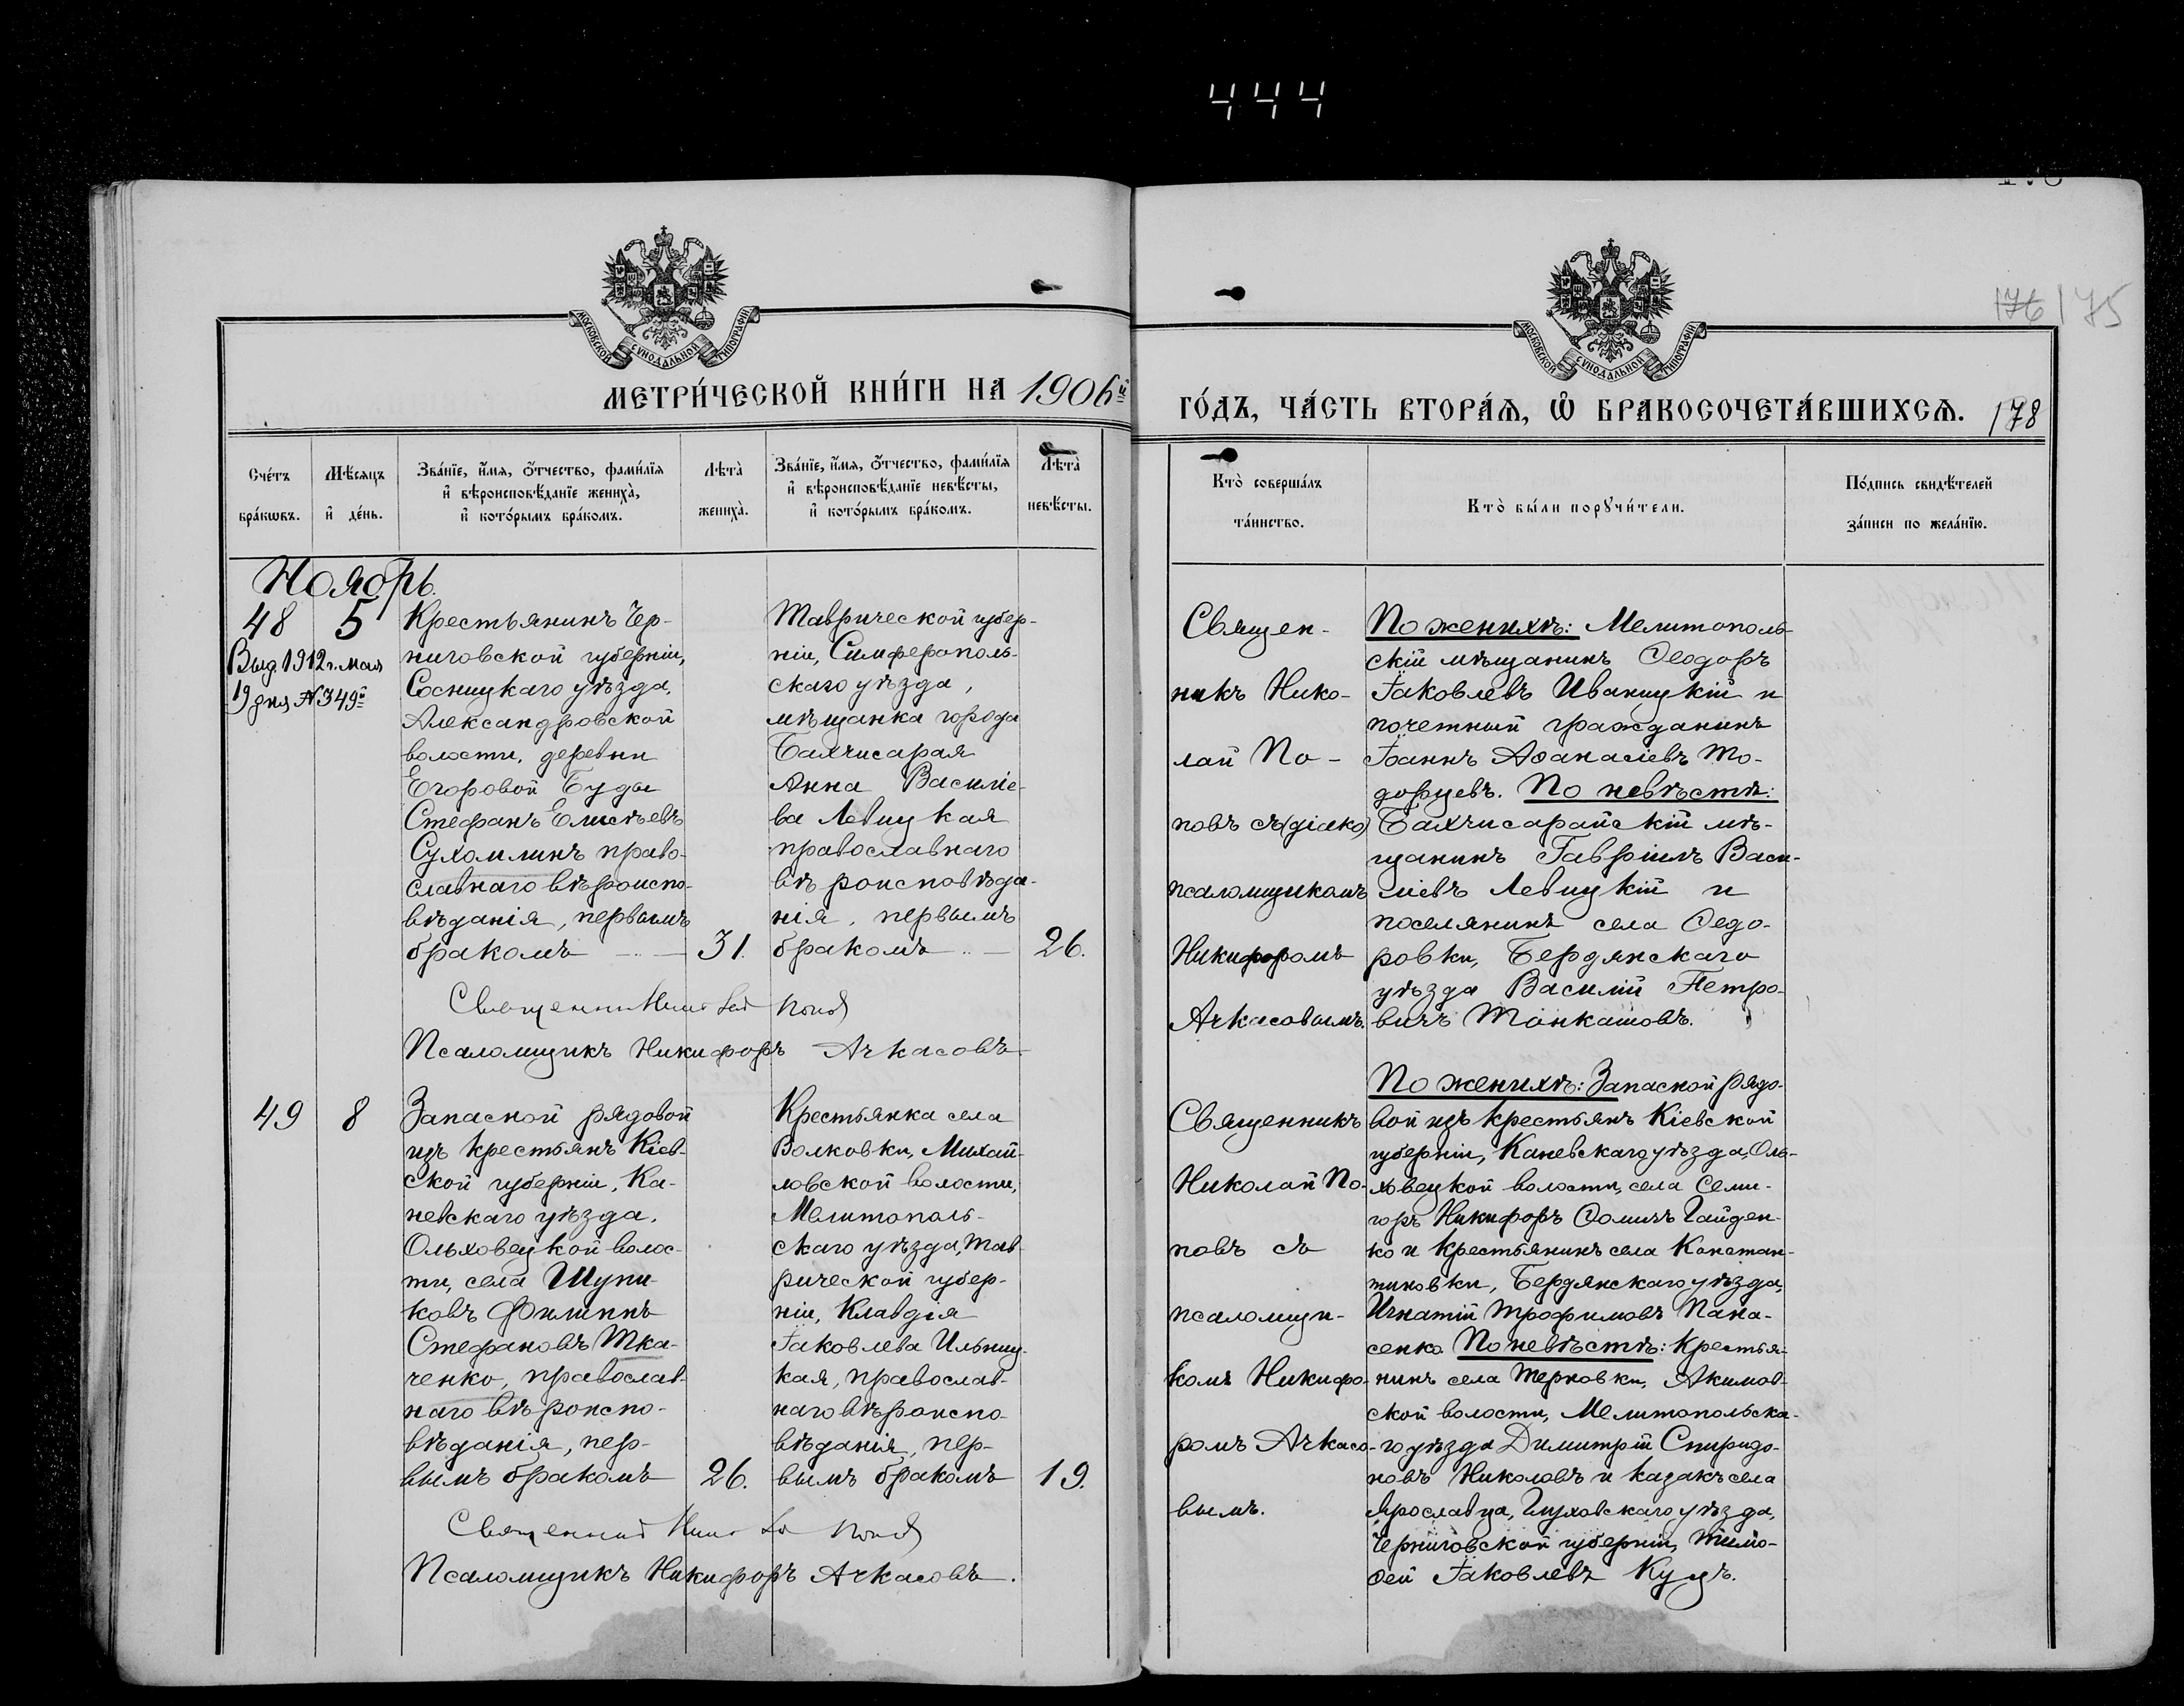 444
176 175
МОСКОВСКОЙ СѴНОДАЛЬНОЙ ТИПОГРАФІИ
МОСКОВСКОЙ СѴНОДАЛЬНОЙ ТИПОГРАФІИ
МЕТРИ́ЧЕСКОЙ КНИ́ГИ НА 1906й
ГО́ДЪ, ЧА́СТЬ ВТОРА́Я, Ѡ БРАКОСОЧЕТА́ВШИХСЯ. 178
Сче́тъ бра́кѡвъ.
Мѣ́сяцъ и҆ де́нь.
Зва́нїе, и҆́мя, ѻ҆́тчество, фами́лїя
и҆ вѣроисповѣ́данїе жениха̀,
и҆ кото́рымъ бра́комъ.
Лѣта̀ жениха̀.
Зва́нїе, и҆́мя, ѻ҆́тчество, фами́лїя
и҆ вѣроисповѣ́данїе невѣ́сты,
и҆ кото́рымъ бра́комъ.
Лѣта̀ невѣ́сты.
Кто̀ соверша́лъ та́инство.
Кто̀ бы́ли порꙋчи́тели.
По́дпись свидѣ́телей за́писи по жела́нїю.
Ноябрь.
48 5
Выд. 1912 г. мая
19 дня № 349й
Крестьянинъ Чер-
ниговской губерніи,
Сосницкаго уѣзда,
Александровской
волости, деревни
Егоровой Буды
Стефанъ Елисѣевъ
Сухомлинъ право-
славнаго вѣроиспо-
вѣданія, первымъ
бракомъ — 31.
Таврической губер-
ніи, Симферополь-
скаго уѣзда,
мѣщанка города
Бахчисарая
Анна Василіе-
ва Левицкая
православнаго
вѣроисповѣда-
нія, первымъ
бракомъ — 26.
Священ-
никъ Нико-
лай По-
повъ съ (діако)
псаломщикомъ
Никифоромъ
Ачкасовымъ.
По женихѣ: Мелитополь-
скій мѣщанинъ Ѳеодоръ
Іаковлевъ Иваницкій и
почетный гражданинъ
Іоаннъ Аѳанасіевъ То-
дорцевъ. По невѣстѣ:
Бахчисарайскій мѣ-
щанинъ Гавріилъ Васи-
ліевъ Левицкій и
поселянинъ села Ѳедо-
ровки, Бердянскаго
уѣзда Василій Петро-
вичъ Танкашовъ.
Священникъ Николай Поповъ
Псаломщикъ Никифоръ Ачкасовъ
49 8
Запасной рядовой
изъ крестьянъ Кіев-
ской губерніи, Ка-
невскаго уѣзда.
Ольховецкой волос-
ти, села Шупи-
ковъ Филиппъ
Стефановъ Тка-
ченко, православ-
наго вѣроиспо-
вѣданія, пер-
вымъ бракомъ 26.
Крестьянка села
Волковки, Михай-
ловской волости,
Мелитополь-
скаго уѣзда, Тав-
рической губер-
ніи, Клавдія
Іаковлева Ильниц-
кая, православ-
наго вѣроиспо-
вѣданія, пер-
вымъ бракомъ 19.
Священникъ
Николай По-
повъ съ
псаломщи-
комъ Никифо-
ромъ Ачкасо-
вымъ.
По женихѣ: Запасной рядо-
вой изъ крестьянъ Кіевской
губерніи, Каневскаго уѣзда, Оль-
ховецкой волости, села Семи-
горъ Никифоръ Ѳомичъ Гайден-
ко и крестьянинъ села Констан-
тиновки, Бердянскаго уѣзда,
Игнатій Трофимовъ Пана-
сенко По невѣстѣ: Крестья-
нинъ села Терновки, Акимов-
ской волости, Мелитопольска-
го уѣзда Димитрій Спиридо-
новъ Николовъ и казакъ села
Ярославца, Глуховскаго уѣзда,
Черниговской губерніи, Тимо-
ѳей Іаковлевъ Куцъ.
Священникъ Николай Поповъ
Псаломщикъ Никифоръ Ачкасовъ.